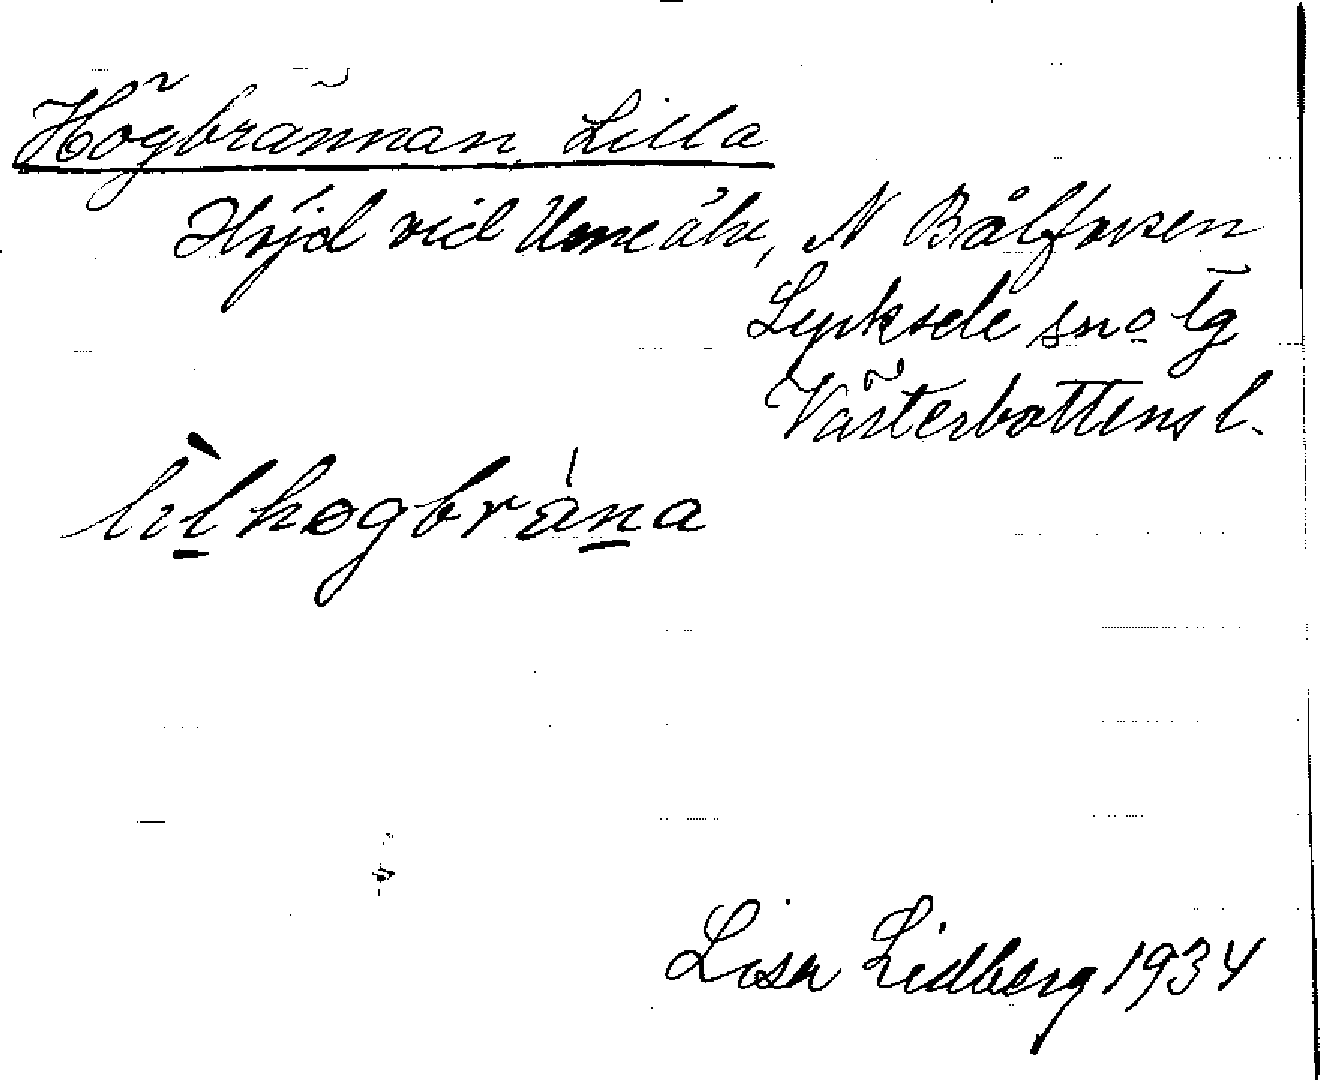 Högbrännan, Lilla
Höjd vid Umeälv, N Bålforsen
Lycksele sn o tg
Västerbottens l.
lìlhøgbrána
Lisa Lidberg 1934